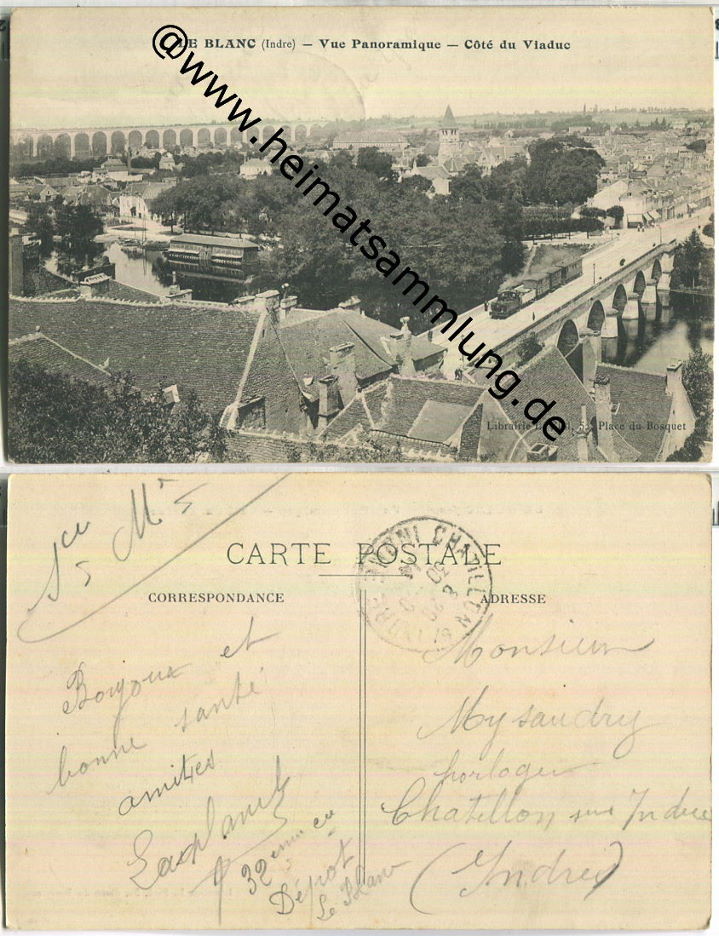 LE BLANC (Indre) — Vue Panoramique — Côté du Viaduc
@www.heimatsammlung.de
Librairie
Place du Bosquet
CARTE POSTALE
CORRESPONDANCE
ADRESSE
CHATILLON
INDRE
Bonjour et
bonne santé
amitiés
32ème
Dépôt
Le Blanc
Monsieur
Mysaudry
horloger
Chatillon sur Indre
(Indre)